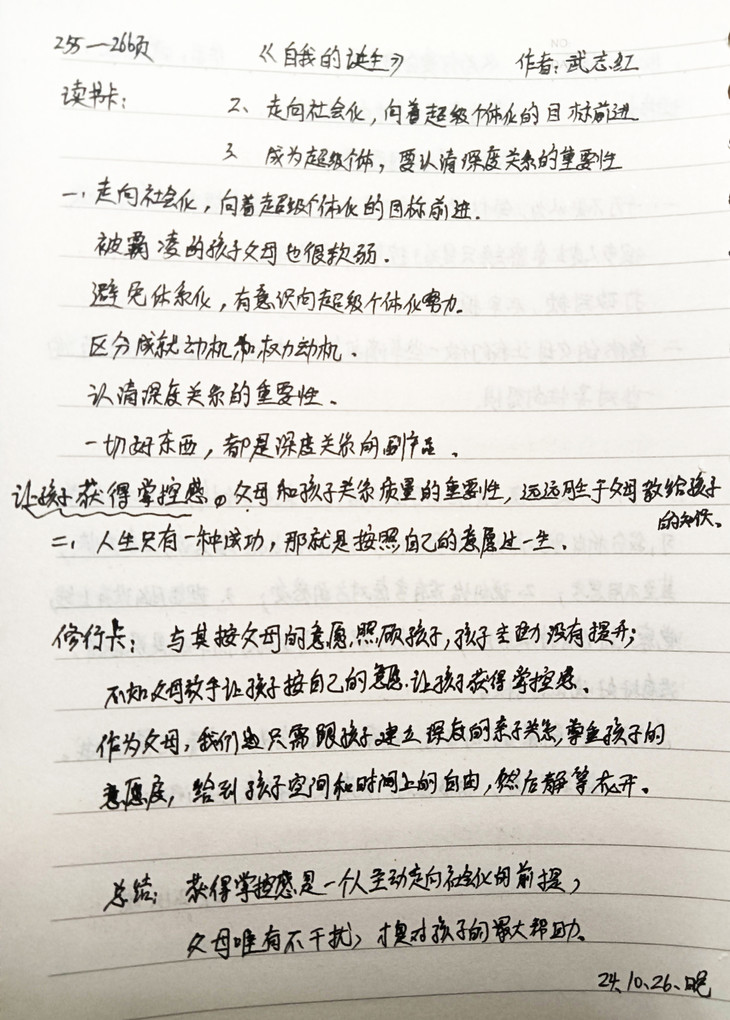 255—266页 《自我的诞生》 作者：武志红
读书卡： 2、走向社会化，向着超级个体化的目标前进
3、成为超级个体，要认清深度关系的重要性
一、走向社会化，向着超级个体化的目标前进．
被霸凌的孩子父母也很软弱．
避免体系化，有意识向超级个体化努力．
区分成就动机和权力动机．
认清深度关系的重要性．
一切好东西，都是深度关系的副产品．
让孩子获得掌控感。父母和孩子关系质量的重要性，远远胜于父母教给孩子
的知识。
二、人生只有一种成功，那就是按照自己的意愿过一生．
修行卡： 与其按父母的意愿，照顾孩子，孩子主动没有提升；
不如父母放手让孩子按自己的意愿．让孩子获得掌控感．
作为父母，我们也只需跟孩子建立深度的亲子关系，尊重孩子的
意愿度，给到孩子空间和时间上的自由，然后静等花开．
总结： 获得掌控感是一个人主动走向社会化的前提，
父母唯有不干扰，才是对孩子的最大帮助．
24、10、26、晚